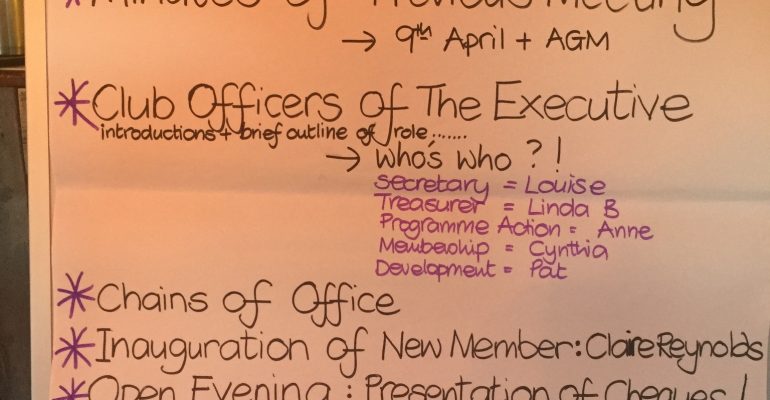 * Minutes of Previous Meeting
→ 9th April + AGM
* Club Officers of The Executive
introductions + brief outline of role.......
→ who's who ? !
Secretary = Louise
Treasurer = Linda B
Programme Action = Anne
Membership = Cynthia
Development = Pat
* Chains of Office
* Inauguration of New Member: Claire Reynolds
* Open Evening : Presentation of Cheques !